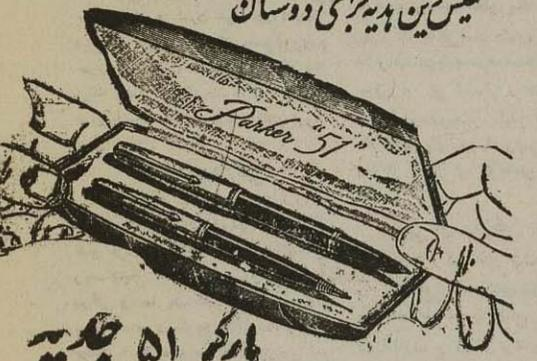 نفیس‌ترین هدیه برای دوستان
Parker "51"
پارکر ۵۱ جدید